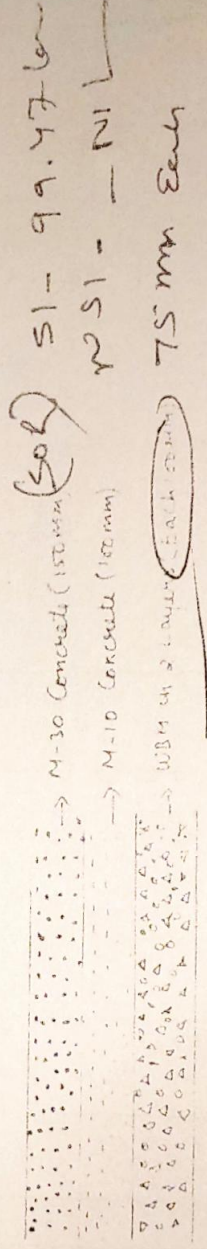 → M-30 Concrete (150mm) (SOR) SI - 99.47 L
→ M-10 Concrete (100mm) NSI - - NIL
→ WBM in 2 Layers (Each 100mm) 75 mm Each